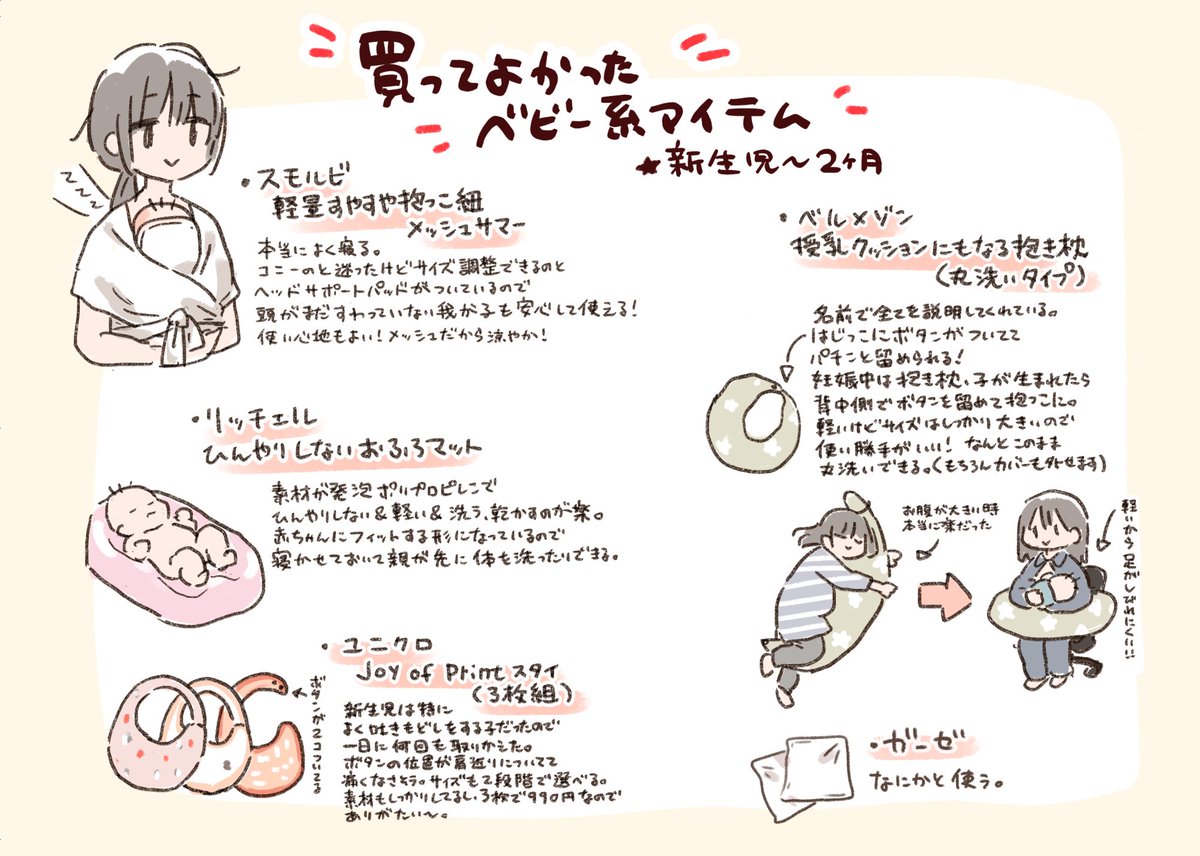 買ってよかった
ベビー系アイテム
★新生児〜2ヶ月
・スモルビ
軽量すやすや抱っこ紐
メッシュサマー
本当によく寝る。
コニーのと迷ったけどサイズ調整できるのと
ヘッドサポートパッドがついているので
頭がまだすわっていない我が子も安心して使える!
使い心地もよい!メッシュだから涼やか!
zzz
・リッチェル
ひんやりしないおふろマット
素材が発泡ポリプロピレンで
ひんやりしない&軽い&洗う、乾かすのが楽。
赤ちゃんにフィットする形になっているので
寝かせておいて親が先に体も洗ったりできる。
・ユニクロ
Joy of Print スタイ
(3枚組)
新生児は特に
よく吐きもどしをする子だったので
一日に何回も取りかえた。
ボタンの位置が肩近りについてて
痛くなさそう。サイズも2段階で選べる。
素材もしっかりしてるし、3枚で990円なので
ありがたい〜。
ボタンが2コついてる
・ベルメゾン
授乳クッションにもなる抱き枕
(丸洗いタイプ)
名前で全てを説明してくれている。
はじっこにボタンがついてて
パチンと留められる!
妊娠中は抱き枕、子が生まれたら
背中側でボタンを留めて抱っこに。
軽いけどサイズはしっかり大きいので
使い勝手がいい! なんとこのまま
丸洗いできる。(もちろんカバーも外せます)
お腹が大きい時
本当に楽だった
軽いから足がしびれにくい!!
・ガーゼ
なにかと使う。